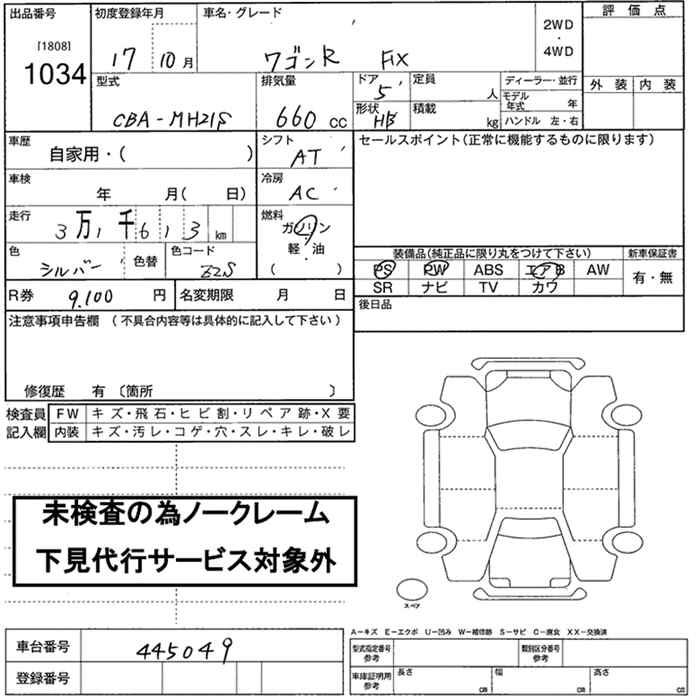 出品番号 初度登録年月 車名・グレード 2WD・4WD 評価点
[1808]
1034 17 10月 ワゴンR FIX
外装 内装
型式 排気量 ドア 定員 人 ディーラー・並行
CBA-MH21S 660 cc 5 モデル年式 年
形状 HB 積載 kg ハンドル 左・右
車歴 自家用・( ) シフト AT セールスポイント(正常に機能するものに限ります)
車検 年 月( 日) 冷房 AC
走行 3万1千613 km 燃料 ガソリン
軽・油
( )
色 シルバー 色替 色コード Z2S
装備品(純品に限り丸をつけて下さい) 新車保証書
PS PW ABS エアB AW 有・無
SR ナビ TV カワ
R券 9.100 円 名変期限 月 日 後日品
注意事項申告欄 (不具合内容等は具体的に記入して下さい)
修復歴 有 〔箇所 〕
検査員 FW キズ・飛石・ヒビ割・リペア跡・X要
記入欄 内装 キズ・汚レ・コゲ・穴・スレ・キレ・破レ
未検査の為ノークレーム
下見代行サービス対象外
スペア
A−キズ E−エクボ U−凹み W−補修跡 S−サビ C−腐食 XX−交換済
車台番号 445049 型式指定番号 参考 類別区分番号 参考
登録番号 車庫証明用 参考 長さ cm 幅 cm 高さ cm